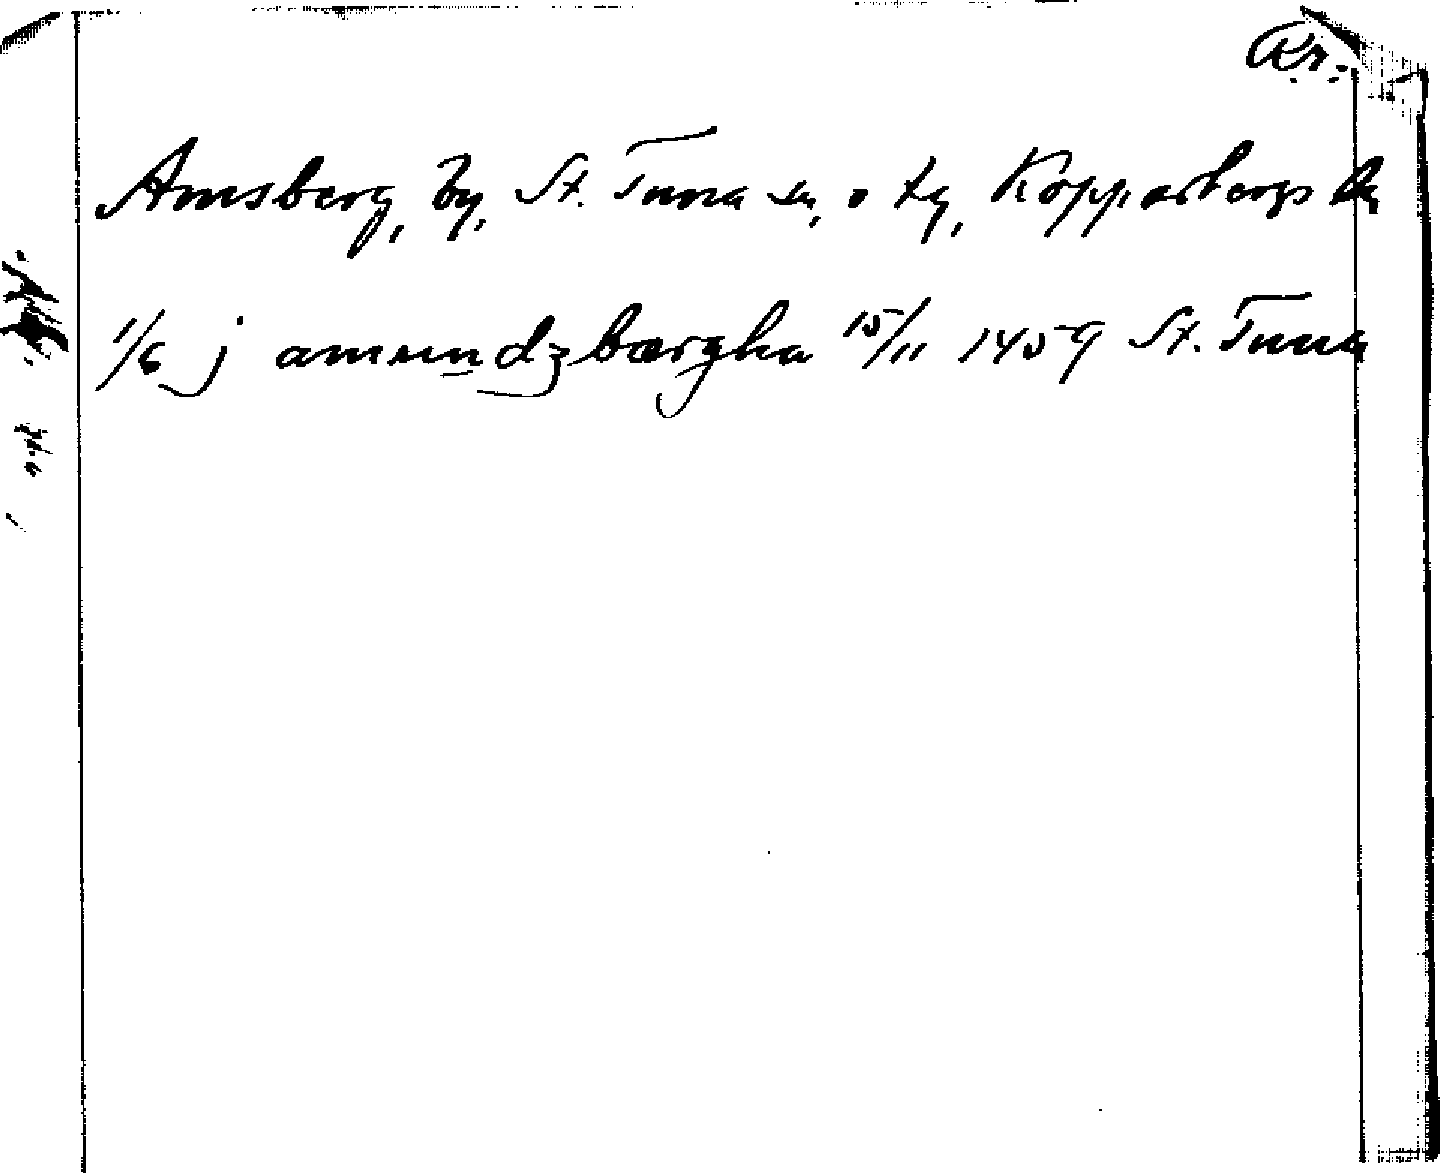 Kr.
Amsberg, by, St. Tuna sn, o tg, Kopparbergs l.
1/6 j amundzbærgha 15/11 1459 St. Tuna